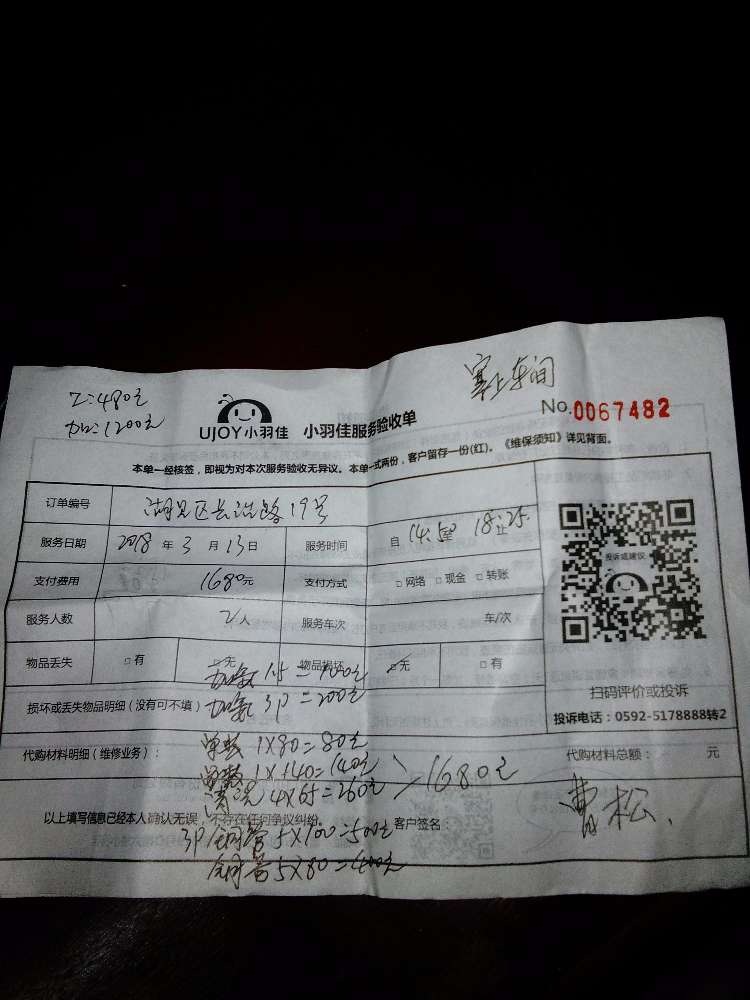 塞上车间
工:480元
加:1200元
UJOY小羽佳 小羽佳服务验收单
No.0067482
本单一经核签，即视为对本次服务验收无异议。本单一式两份，客户留存一份(红)。《维保须知》详见背面。
订单编号 湖里区长浩路19号
服务日期 2018年3月13日 服务时间 自14:50至18:25止
支付费用 1680元 支付方式 □网络 □现金 □转账
服务人数 2人 服务车次 车/次
物品丢失 □有 □无 物品损坏 □无 □有
投诉或建议
扫码评价或投诉
投诉电话：0592-5178888转2
损坏或丢失物品明细（没有可不填）
加氨 3P=200元
代购材料明细（维修业务）：
1X80=80元
1X140=140元
清洗 4X65=260元
1680元
代购材料总额： 元
以上填写信息已经本人确认无误，不存在任何争议纠纷。 客户签名： 曹松
3P 铜管 5X100=500元
铜管 5X80=400元